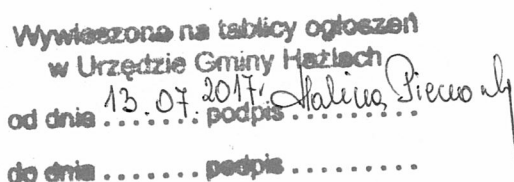 Wywieszono na tablicy ogłoszeń
w Urzędzie Gminy Hażlach
od dnia 13.07.2017r. podpis Halina
do dnia ........ podpis .........